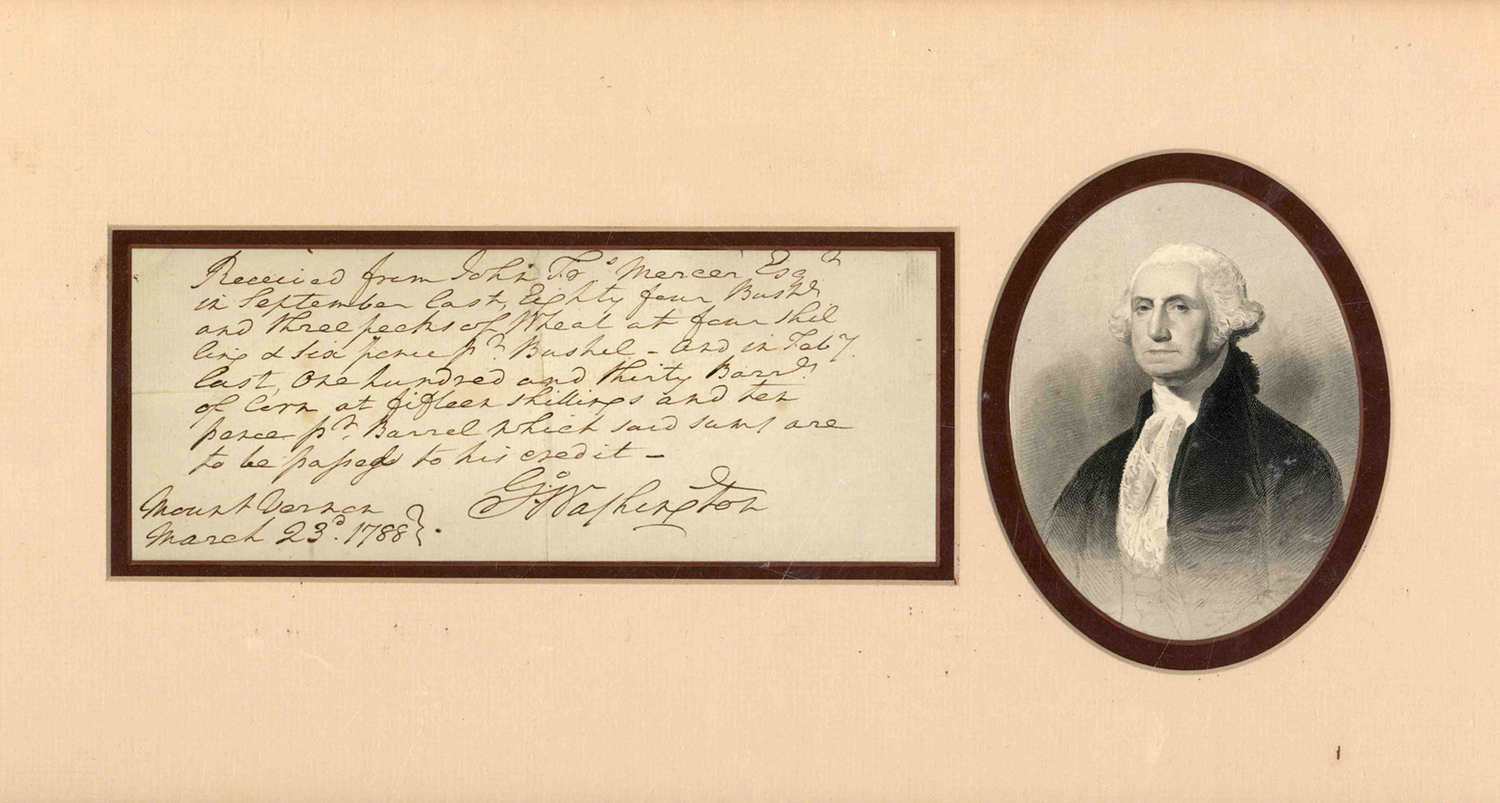 Received from John Fr.s Mercer Esqr
in September last, Eighty four Bushls
and three pecks of Wheat at four shil
ling & six pence pr. Bushel – and in Feby
last, One hundred and thirty Barrls
of Corn at fifteen shillings and ten
pence pr. Barrel which said sums are
to be passed to his credit –
Go: Washington
Mount Vernon
March 23d. 1788